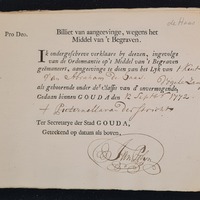 de Haas
Pro Deo.
Billiet van aangeevinge, wegens het
Middel van 't Begraven.
IK ondergeschreve verklaare by dezen, ingevolge
van de Ordonnantie op 't Middel van 't Begraven
geëmaneert, aangeevinge te doen van het Lyk van 1 Kint
Van Abraham de Haas
als gehoorende onder de Classe van d'onvermogende.
Gedaan binnen GOUDA den 12 Septr 1772
Ter Secretarye der Stad GOUDA.
Geteekend op datum als boven,